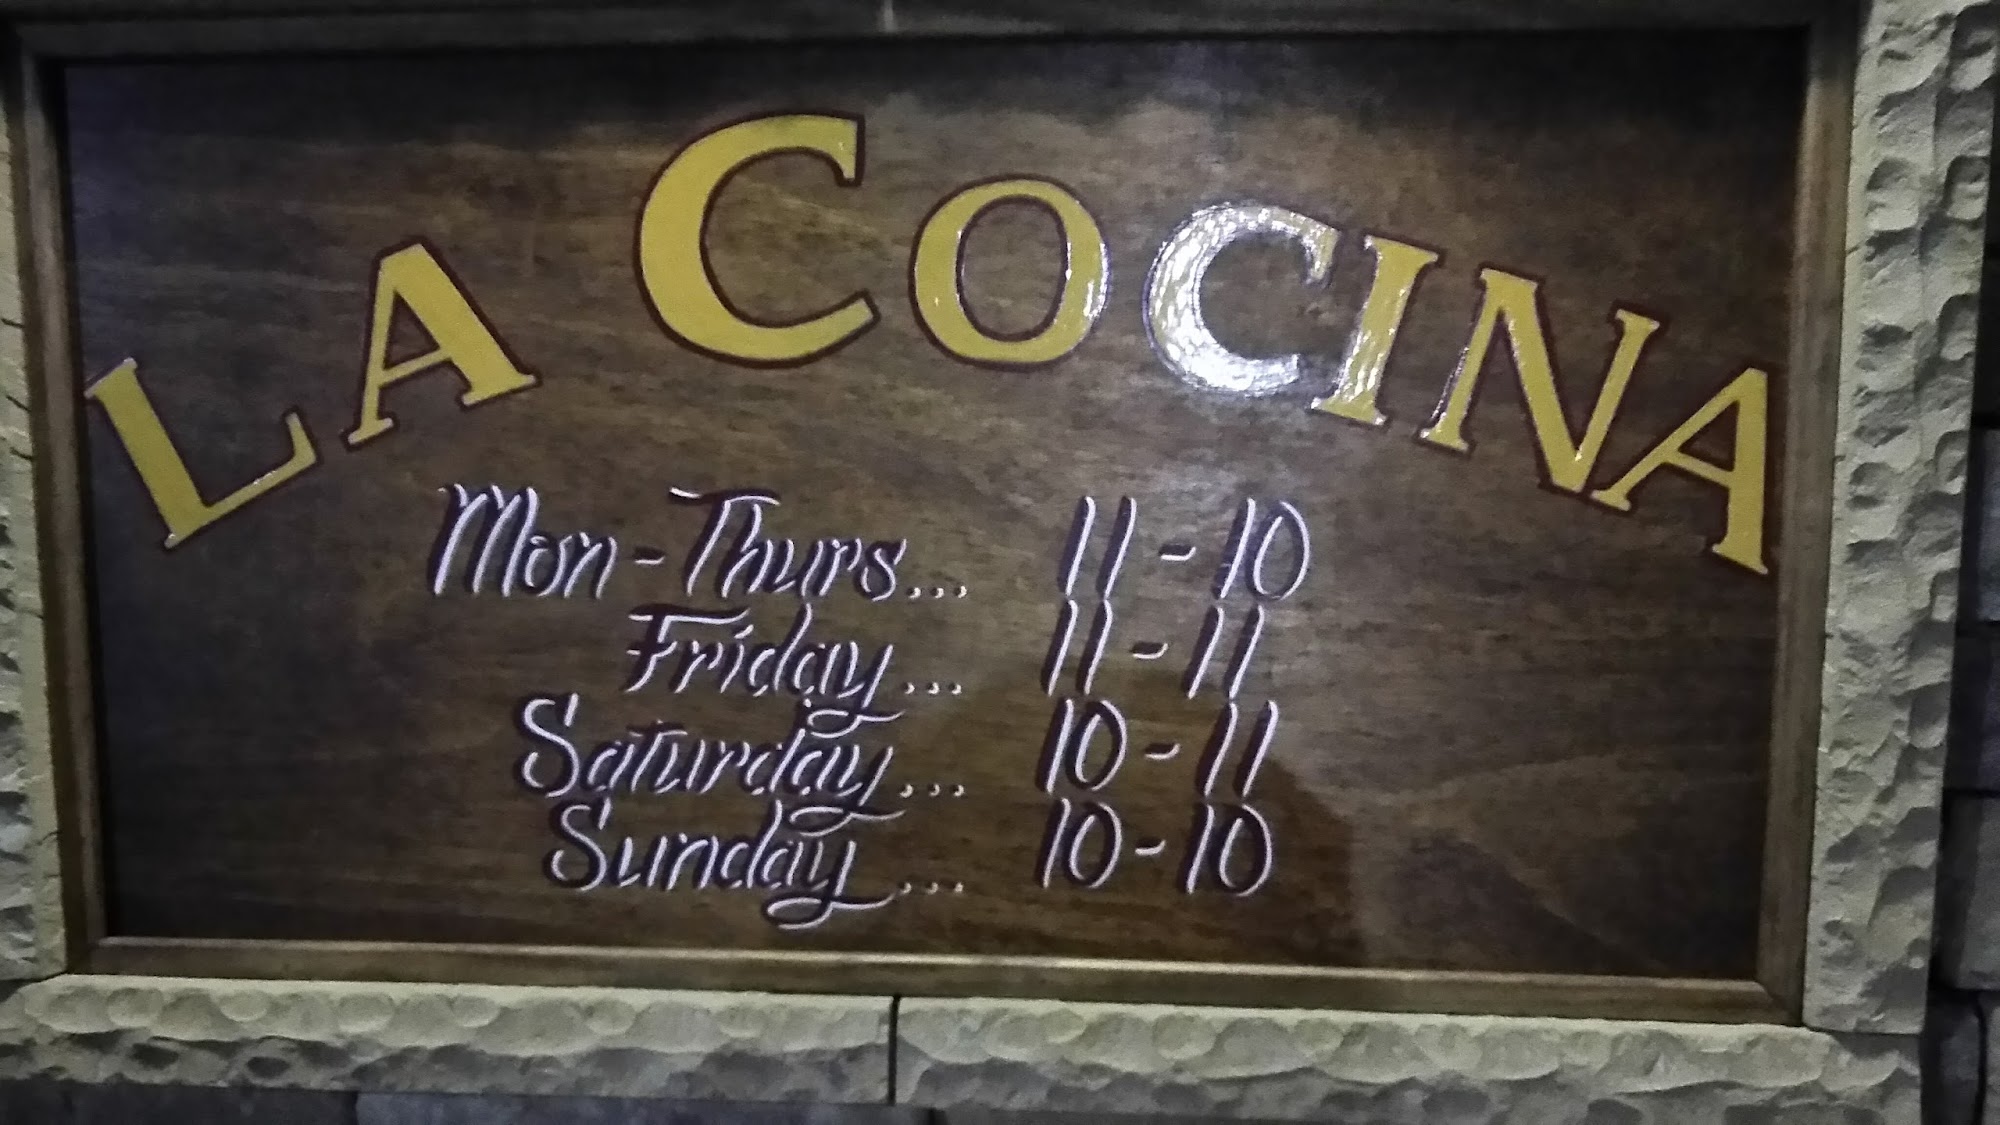 LA COCINA
Mon - Thurs... 11 - 10
Friday... 11 - 11
Saturday... 10 - 11
Sunday... 10 - 10